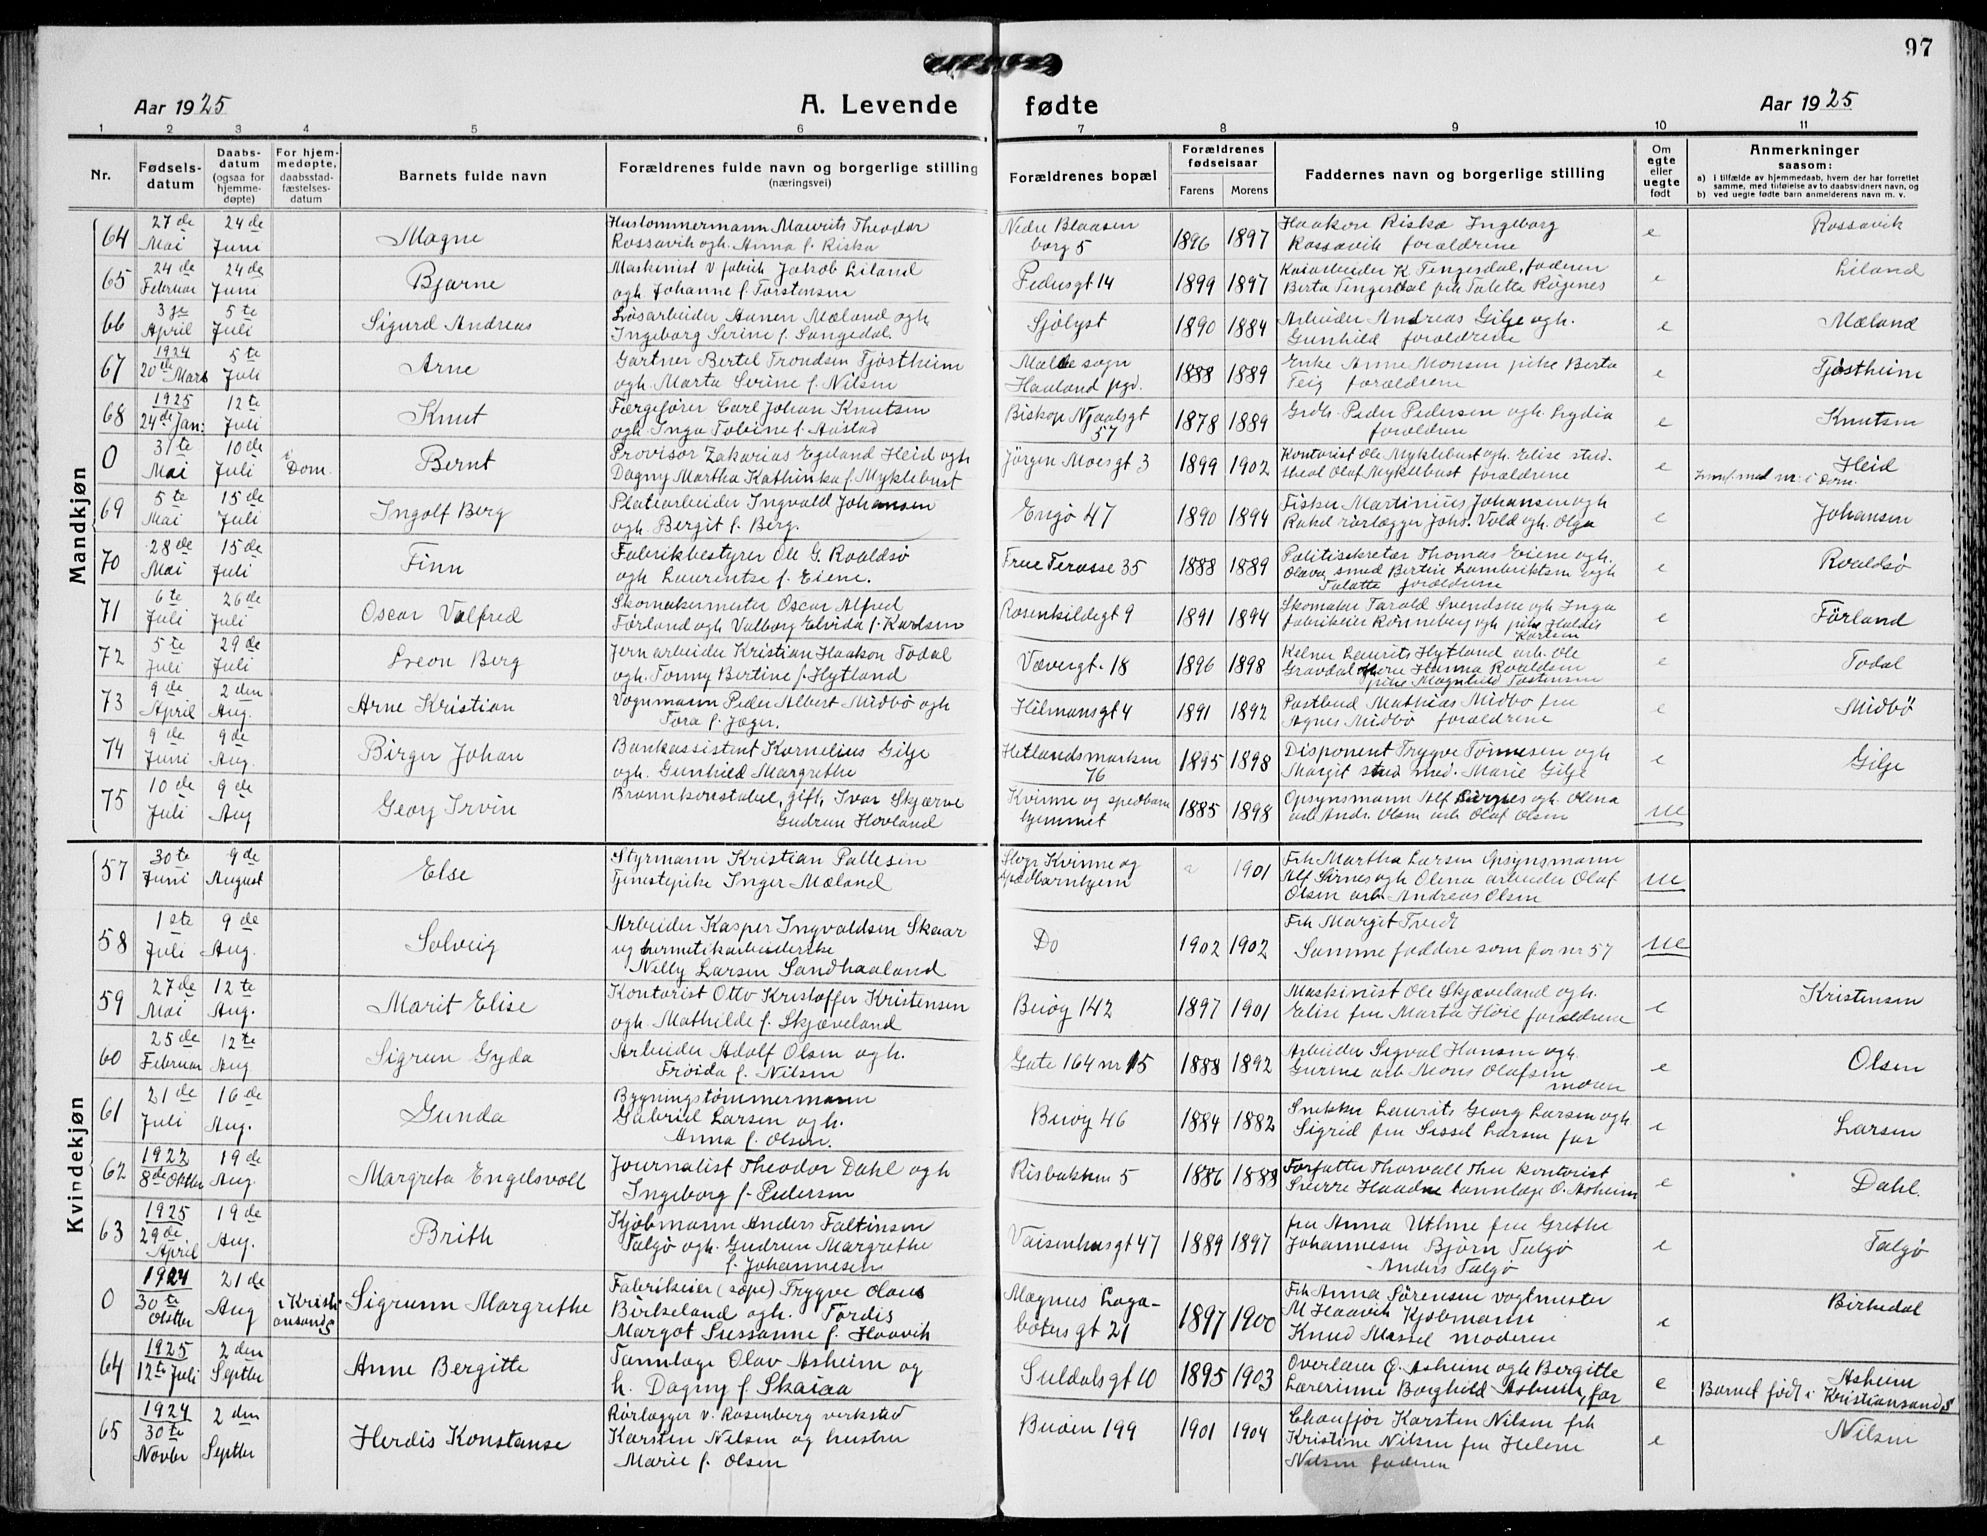 97
Aar 1925 A. Levende fødte Aar 1925
1 2 3 4 5 6 7 8 9 10 11
Nr. Fødsels-datum Daabs-datum (ogsaa for hjemme-døpte) For hjem-medøpte, daabsstad-fæstelses-datum Barnets fulde navn Forældrenes fulde navn og borgerlige stilling (næringsvei) Forældrenes bopæl Forældrenes fødselsaar Farens Morens Faddernes navn og borgerlige stilling Om egte eller uegte født Anmerkninger saasom:
a) I tilfælde av hjemmedaab, hvem der har forrettet samme, med tilføielse av to daabsvidners navn, og
b) ved uegte fødte barn anmelderens navn m. v.
Mandkjøn
64 27de Mai 24de Juni Magne Hustømmermann Maurits Theodor
Rossavik ogh. Anna f. Riska Nedre Blaasenborg 5 1896 1897 Haakon Riska Ingeborg
Rossavik forældrene e Rossavik
65 24de Februar 24de Juni Bjarne Maskinist v fabrik Jakob Liland
ogh Johanne f. Torstensen Pedersgt 14 1899 1897 Kaiarbeider K Tengesdal, faderen
Berta Tengesdal frk Taletta Røgenes e Liland
66 3je April 5te Juli Sigurd Andreas Løsarbeider Aanen Mæland ogh
Ingeborg Serine f. Sangedal. Sjölyst 1890 1884 Arbeider Andreas Gilje ogh.
Gunhild forældrene e Mæland
67 1924 20de Mars 5te Juli Arne Gartner Bertel Trondsen Tjøstheim
ogh. Marta Serine f. Nilsen Malde sogn
Haaland pgd. 1888 1889 Enke Anne Monsen pike Berta
Teig forældrene e Tjøstheim
68 1925 24de Jan: 12te Juli Knut Færgefører Carl Johan Knutsen
ogh. Inga Tobine f. Aastad Biskop Njaalsgt
57 1878 1889 Grdb. Peder Pedersen ogh. Lydia
forældrene e Knutsen
0 31te Mai 10de Juli i Dom. Bernt Provisor Zakarias Egeland Heid ogh
Dagny Martha Kathinka f. Myklebust Jörgen Moesgt 3 1899 1902 Kontorist Ole Myklebust ogh. Elise stud.
theol Olaf Myklebust forældrene e Heid
69 5te Mai 15de Juli Ingolf Berg Platearbeider Ingvald Johansen
ogh. Bergit f. Berg. Engø 47 1890 1894 Fisker Martinius Johansen ogh
Rakel rørlægger Johs. Vold ogh. Olga e Johansen
70 28de Mai 15de Juli Finn Fabrikbestyrer Ole G. Roaldsø
ogh Laurentse f. Eiene. Frue Terasse 35 1888 1889 Politisekretær Thomas Eiene ogh.
Olava smed Bertin Lambriktsen ogh
Talette forældrene e Roaldsø
71 6te Juli 26de Juli Oscar Valfred Skomakermester Oscar Alfred
Förland ogh Valborg Elvida f. Karlsen Rosenkildegt 9 1891 1894 Skomaker Tarald Svendsen ogh Inga
fabrikeier Rønneberg ogh pike Haldis
Karlsen e Förland
72 5te Juli 29de Juli Leon Berg Jernarbeider Kristian Haakon Todal
ogh. Tonny Bertine f. Hytland Vævergt. 18 1896 1898 Kelner Laurits Hytland arb. Ole
Gravdal Hanna Roaldsen
pike Magnhild Tostensen e Todal
73 9de April 2den Aug. Arne Kristian Vognmann Peder Albert Midbø ogh
Tora f. Jæger. Hilmansgt 4 1891 1892 Postbud Mathias Midbø frk
Agnes Midbø forældrene e Midbø
74 9de Juni 9de Aug. Birger Johan Bankassistent Kornelius Gilje
ogh. Gunhild Margrethe Hetlandsmarken
76 1895 1898 Disponent Trygve Tönnesen ogh
Margit stud med. Marie Gilje e Gilje
75 10de Juli 9de Aug Georg Irvin Brannkonstabel, gift, Ivar Skjærve
Gudrun Hovland Kvinne og spedbarn
hjemmet 1885 1898 Opsynsmann Alf Sirnes ogh. Olena
arb Andr. Olsen arb Olaf Olsen ue
Kvindekjøn
57 30te Juni 9de August Else Styrmann Kristian Pallesen
Tjenestepike Inger Mæland Kvinne og
spædbarnhjem 1901 Frk Martha Larsen Opsynsmann
Alf Sirnes ogh Olena arbeider Olaf
Olsen arb. Andreas Olsen ue
58 1ste Juli 9de Aug. Solveig Arbeider Kasper Ingvaldsen Skaar
og hermetikarbeiderske
Nelly Larsen Sandhaaland Do 1902 1902 Frk Margit Tveit
Samme faddere som for nr 57 ue
59 27de Mai 12te Aug. Marit Elise Kontorist Otto Kristoffer Kristensen
ogh. Mathilde f. Skjæveland Buøy 142 1897 1901 Maskinist Ole Skjæveland ogh.
Elise frk Marta Høie forældrene e Kristensen
60 25de Februar 12te Aug Sigrun Gyda Arbeider Adolf Olsen ogh.
Froida f. Nilsen Gate 164 nr 15 1888 1892 Arbeider Sigval Hansen ogh.
Gurine arb Mons Olafsen
moren e Olsen
61 21de Juli 16de Aug. Gunda Bygningstømmermann
Gabriel Larsen ogh.
Anna f. Olsen. Buøy 46 1884 1882 Snekker Laurits Georg Larsen ogh
Sigrid frk Sissel Larsen far e Larsen
62 1922 8de Oktbr 19de Aug Margreta Engelsvoll Journalist Theodor Dahl ogh
Ingeborg f. Pedersen Risbakken 5 1886 1888 Forfatter Thorvall Thu kontorist
Sverre Haadne tannlæge O. Asheim e Dahl.
63 1925 29de April 19de Aug. Brith Kjøbmann Anders Faltinsen
Talgø ogh. Gudrun Margrethe
f. Johannesen Vaisenhusgt 47 1889 1897 fru Anna Uthne fru Grethe
Johannesen Bjørn Talgø
Anders Talgø e Talgø
0 1924 30te Oktbr 21de Aug i Kristiansand S Sigrunn Margrethe Fabrikeier (sæpe) Trygve Olaus
Birkeland ogh. Tordis
Margot Sussanne f. Haavik Magnus Lagabøtersgt 21 1897 1900 Frk Anna Sørensen vagtmester
M Haavik Kjøbmann
Knud Massel moderen e
64 1925 12te Juli 2den Septbr Anne Bergitte Tannlæge Olav Asheim og
h. Dagny f. Skaiaa Suldalsgt 10 1895 1903 Overlærer O. Asheim ogh Bergitte
Lærerinne Borghild Asheim, far e Asheim
Barnet født i Kristiansand S
65 1924 30te Novbr 2den Septbr Herdis Konstanse Rørlægger v. Rosenberg verksted
Karsten Nilsen og hustru
Marie f. Olsen Buøen 199 1901 1904 Chauffør Karsten Nilsen frk
Kristine Nilsen fru Helene
Nilsen faderen e Nilsen